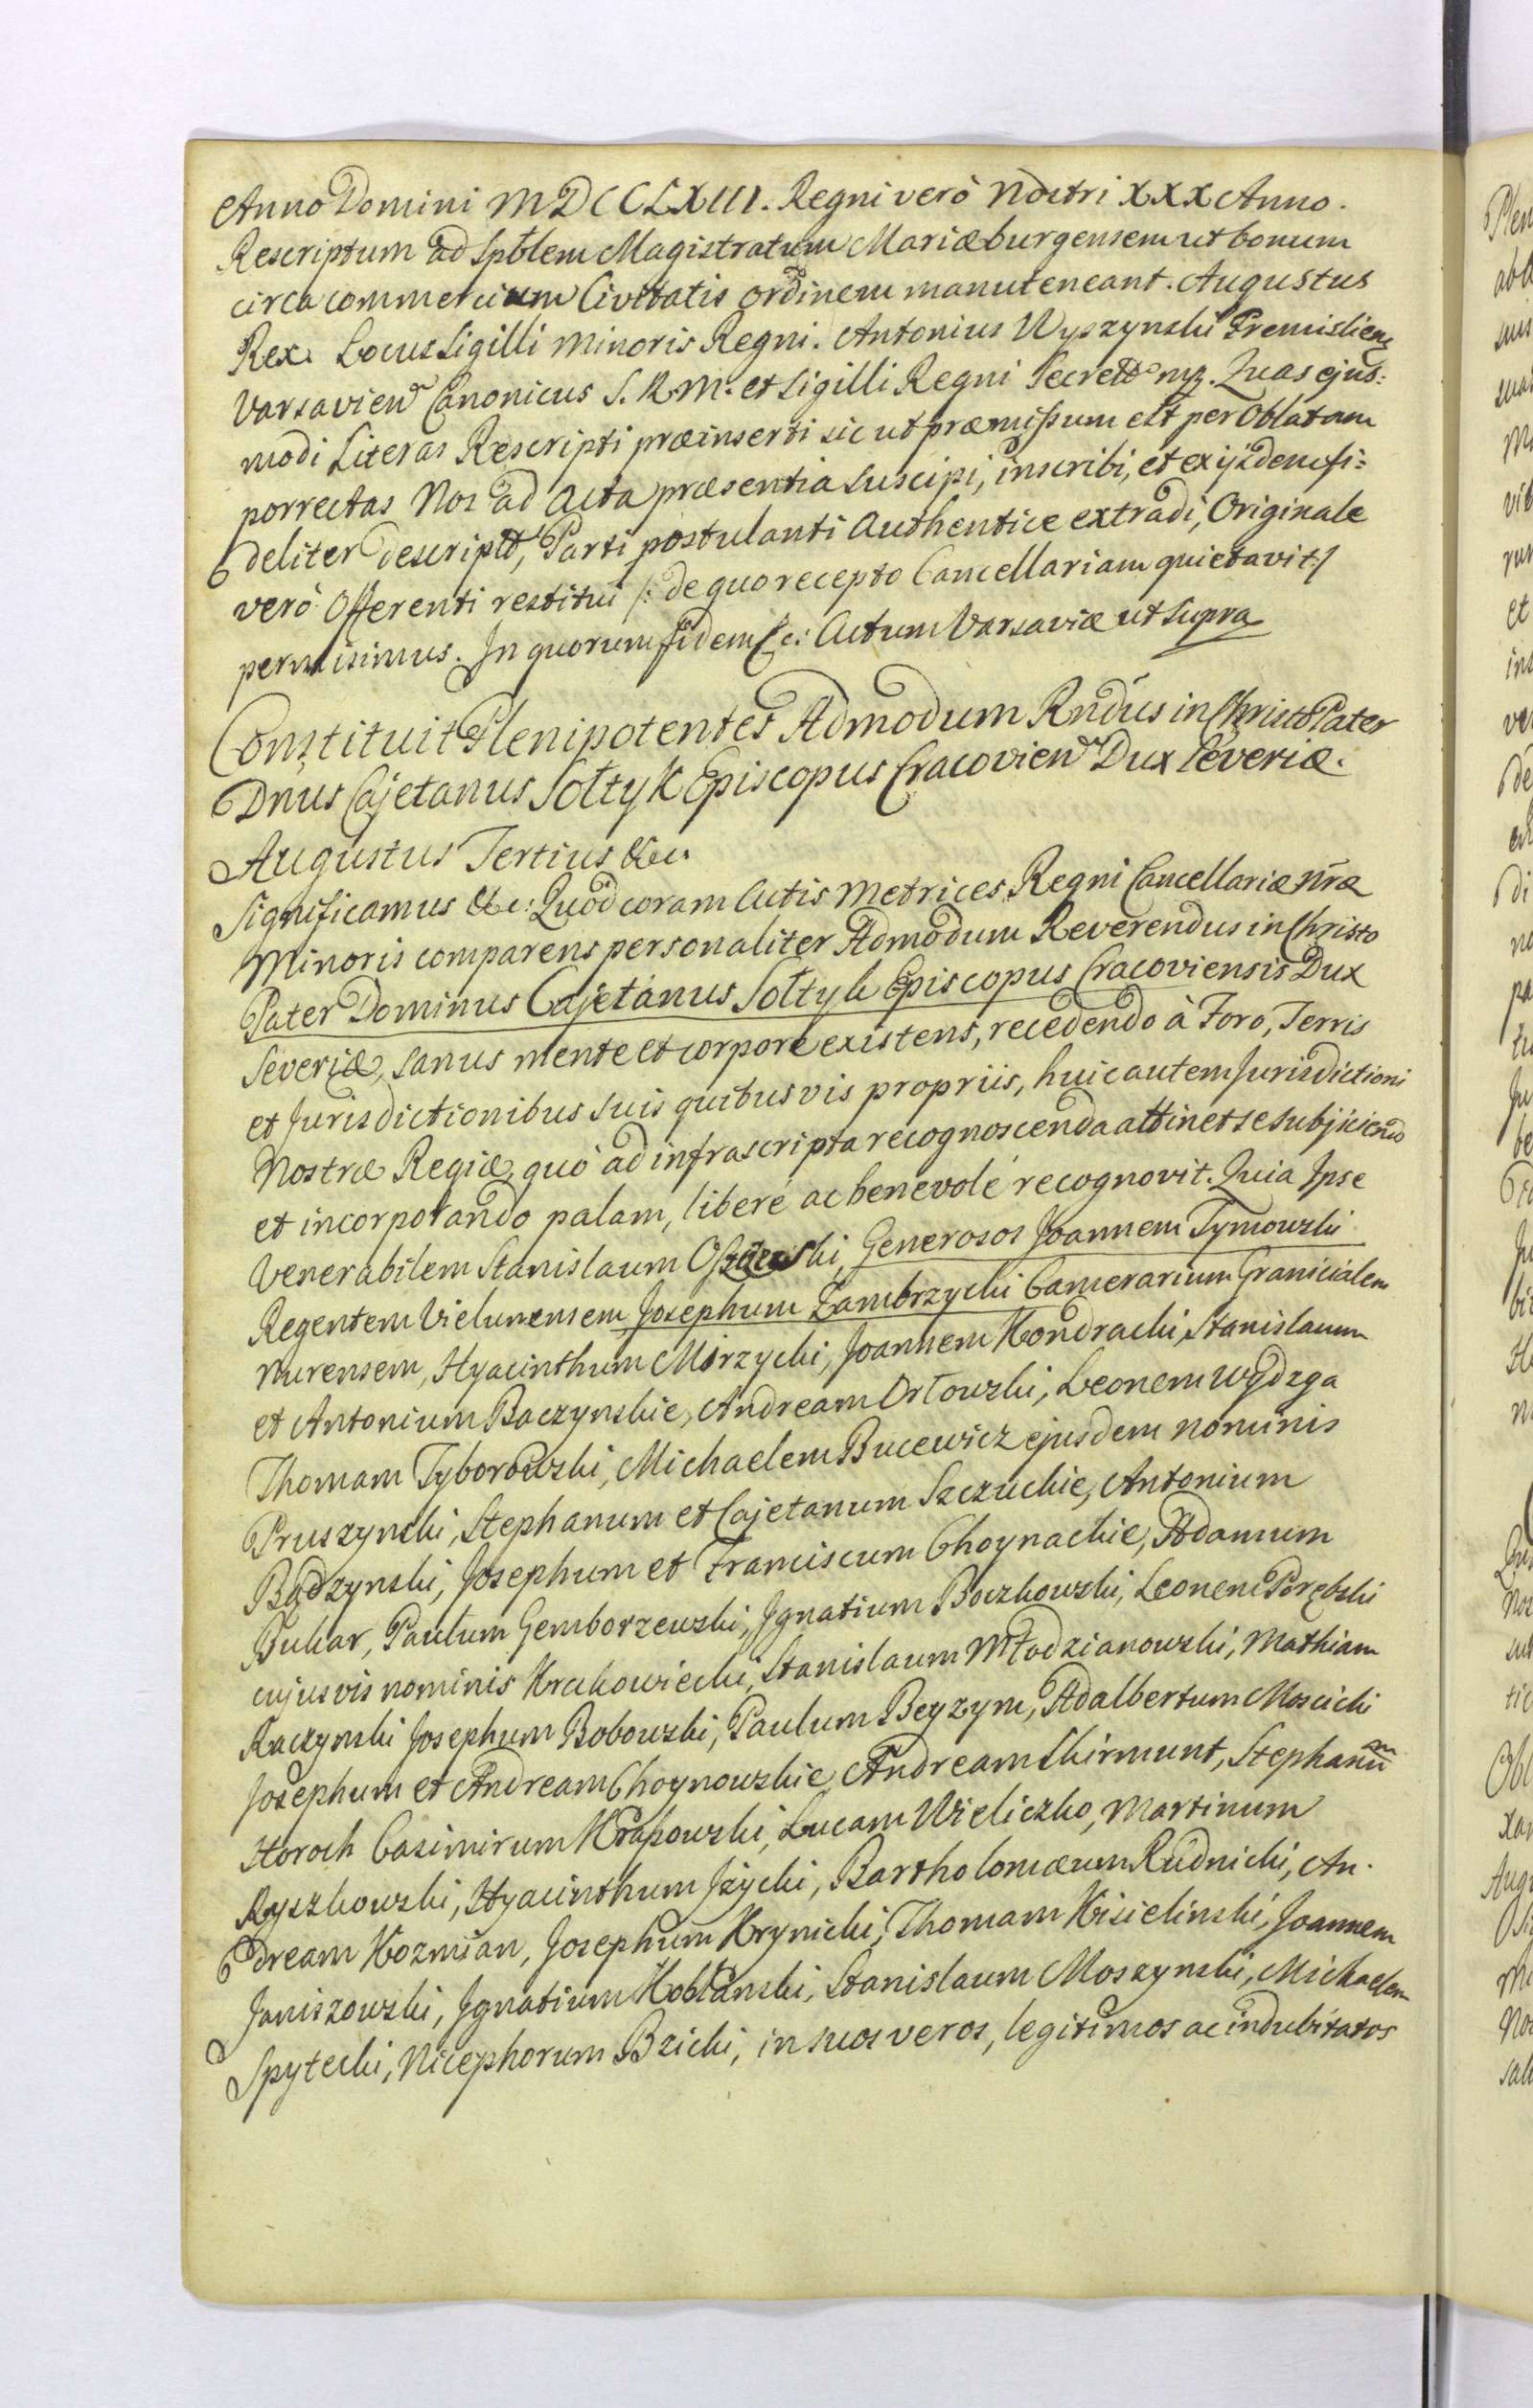 Anno Domini MDCCLXIII. Regni verò Nostri XXX Anno.
Rescriptum ad Spblem Magistratum Mariæburgensem ut bonum
circa commercium Civitatis ordinem manuteneant. Augustus
Rex. Locus Sigilli Minoris Regni. Antonius Wyszynski Premislien
Varsavien Canonicus S.R.M. et Sigilli Regni Secrett mp. Quas ejus:
modi Literas Rescripti præinserti sic ut præmissum est per Oblatam
porrectas Nos ad Acta præsentia suscipi, inscribi, et ex ijsdem fi:
deliter descriptt, Parti postulanti Authentice extradi, Originale
verò Offerenti restitui /: de quo recepto Cancellariam quietavit:/
permisimus. In quorum fidem &c: Actum Varsaviæ ut Supra
Constituit Plenipotentes Admodum Rndus in Christo Pater
Dnus Cajetanus Sołtyk Episcopus Cracovien Dux Severiæ.
Augustus Tertius &c.
Significamus &c: Quod coram Actis Metrices Regni Cancellariæ nræ
Minoris comparens personaliter Admodum Reverendus in Christo
Pater Dominus Cajetanus Sołtyk Episcopus Cracoviensis Dux
Severiæ, sanus mente et corpore existens, recedendo à Foro, Terris
et Jurisdictionibus suis quibusvis propriis, huic autem Jurisdictioni
Nostræ Regiæ, quò ad infrascripta recognoscenda attinet se subjiciendo
et incorporando palam, liberè ac benevolè recognovit. Quia Ipse
Venerabilem Stanislaum Generosos Joannem Tymowski
Regentem Vielunensem Josephum Zambrzycki Camerarium Granicialem
Nurensem, Hyacinthum Mirzycki, Joannem Kondracki, Stanislaum
et Antonium Baczynskie, Andream Orłowski, Leonem Wydzga
Thomam Tyborowski, Michaelem Bucewicz ejusdem nominis
Pruszynski, Stephanum et Cajetanum Szczuckie, Antonium
Bądzynski, Josephum et Franciscum Choynackie, Adamum
Bukar, Paulum Gemborzewski, Ignatium Boczkowski, Leonem Porębski
cujusvis nominis Krakowiecki, Stanislaum Młodzianowski, Mathiam
Raczynski Josephum Bobowski, Paulum Beyzym, Adalbertum Moscicki
Josephum et Andream Choynowskie, Andream Skirmunt, Stephanum
Horoch Casimirum Krapowski, Lucam Wieliczko, Martinum
Ryszkowski, Hyacinthum Jżycki, Bartholomæum Rudnicki, An-
dream Kozmian, Josephum Krynicki, Thomam Kisielinski, Joannem
Janiszowski, Ignatium Kobłanski, Stanislaum Moszynski, Michaelem
Spytecki, Nicephorum Bzicki, in suos veros, legitimos ac indubitatos